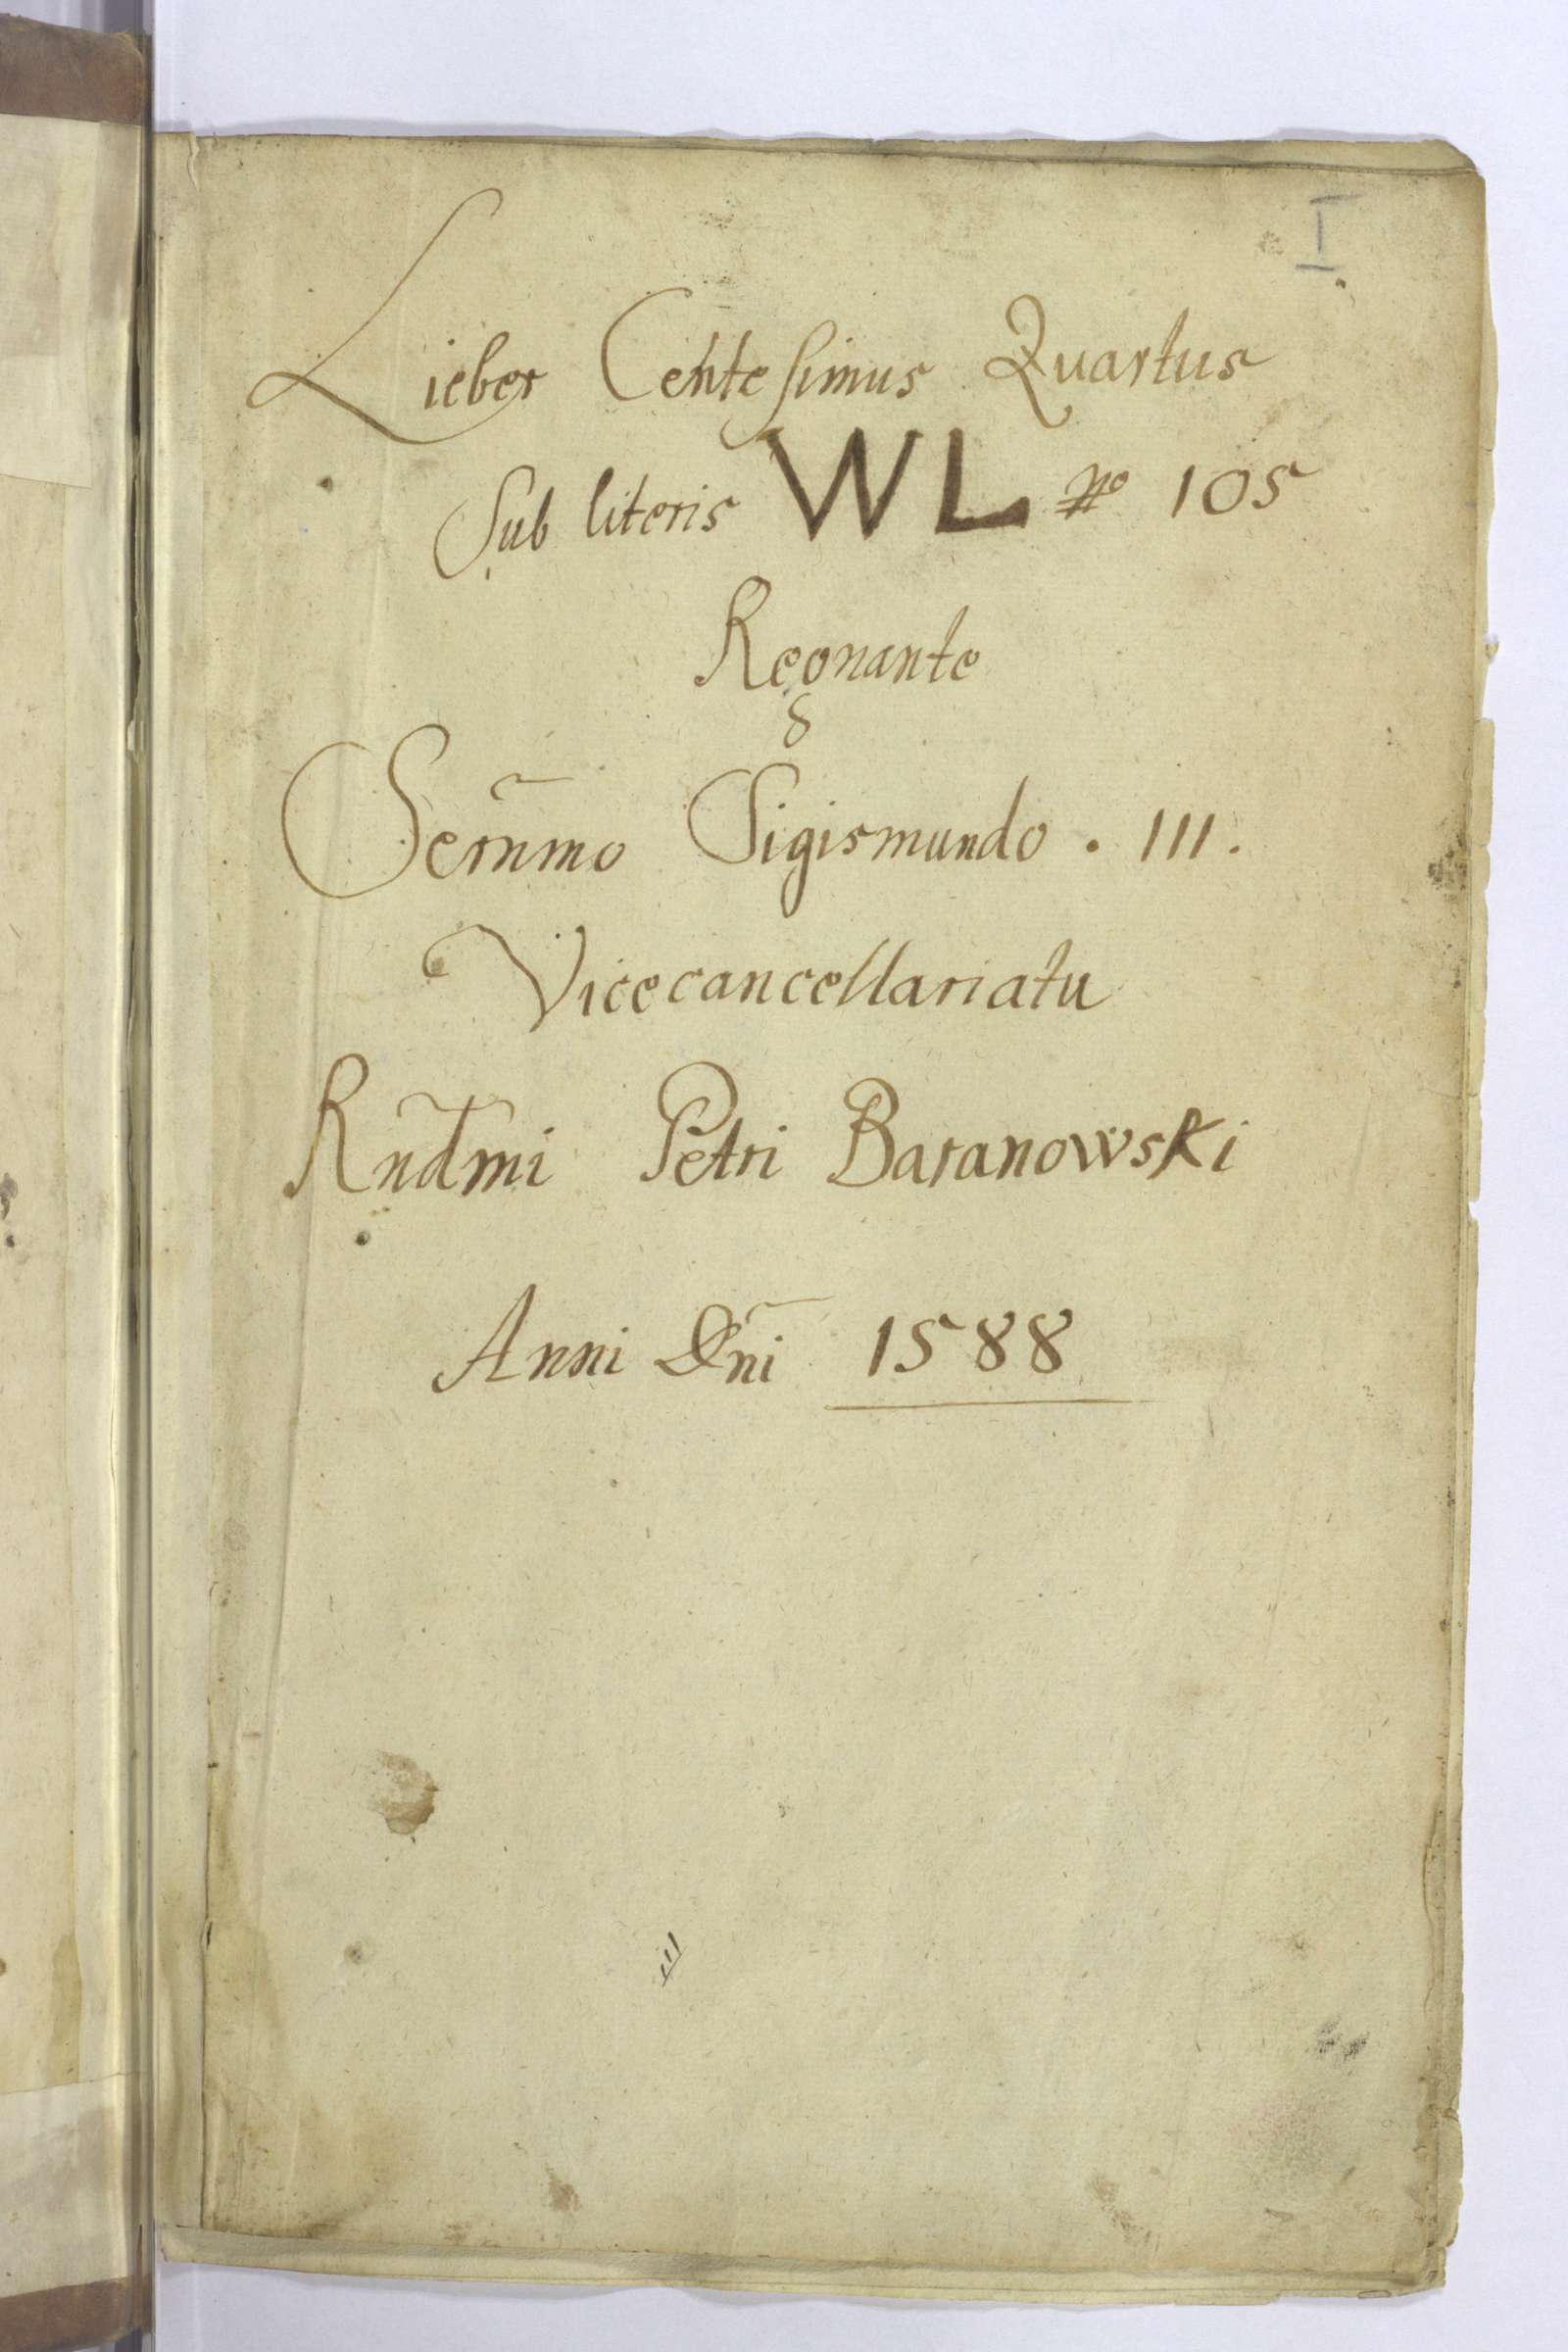 I
Lieber Centesimus Quartus
Sub literis WL No 105
Regnante
Serñmo Sigismundo . III.
Vicecancellariatu
Rndm̃i Petri Baranowski
Anni Dñi 1588